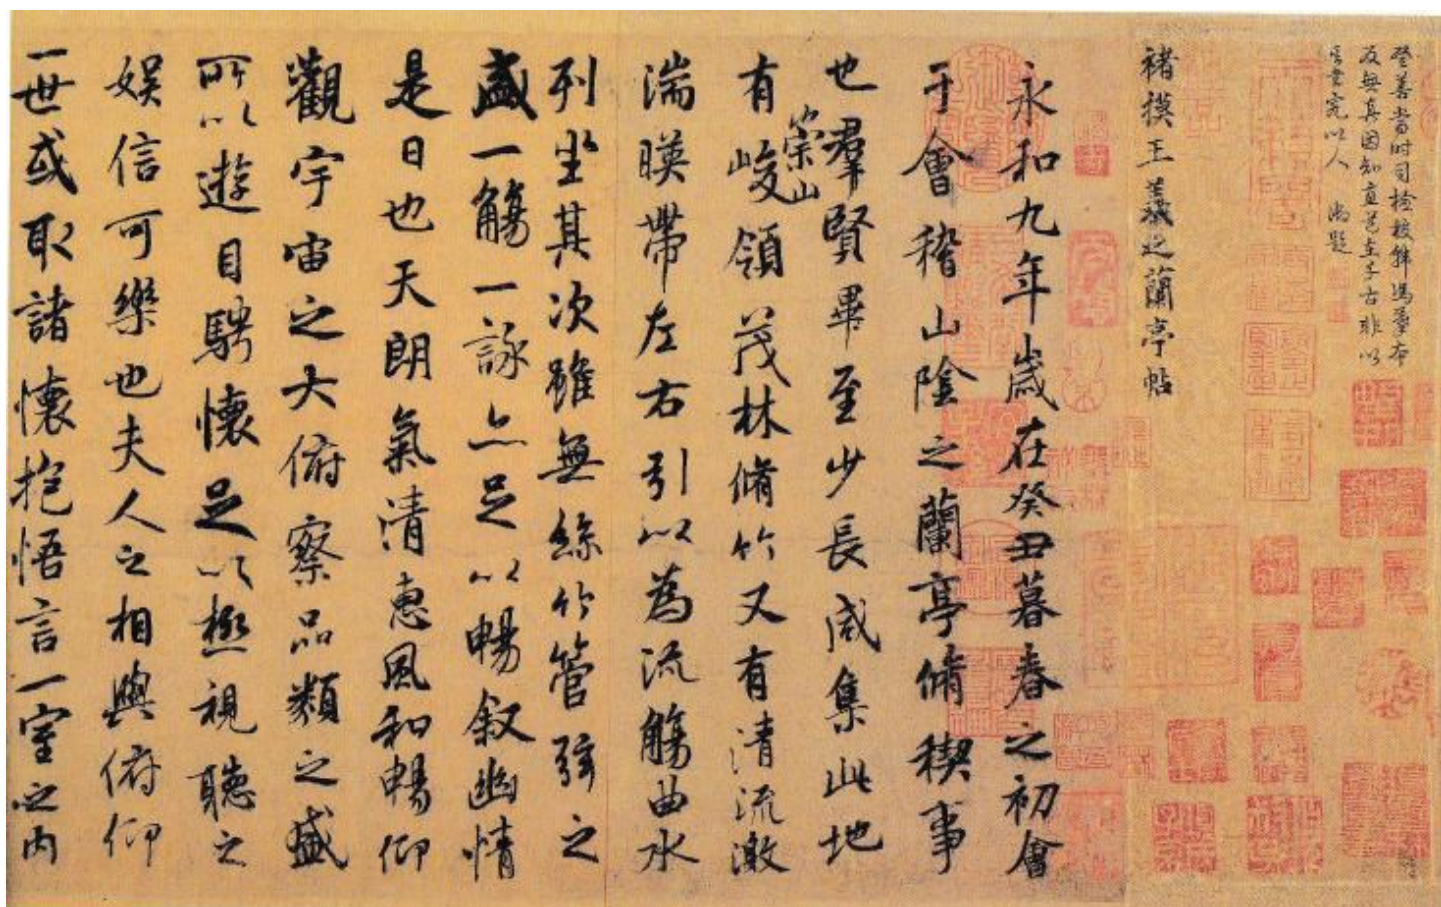 登善當時司檢校
無真因知直 古非以
以人 御題
褚摸王羲之蘭亭帖
永和九年歲在癸丑暮春之初會
于會稽山陰之蘭亭脩稧事
也羣賢畢至少長咸集此地
有崇山峻領茂林脩竹又有清流激
湍暎帶左右引以為流觴曲水
列坐其次雖無絲竹管弦之
盛一觴一詠亦足以暢叙幽情
是日也天朗氣清惠風和暢仰
觀宇宙之大俯察品類之盛
所以遊目騁懷足以極視聽之
娛信可樂也夫人之相與俯仰
一世或取諸懷抱悟言一室之內